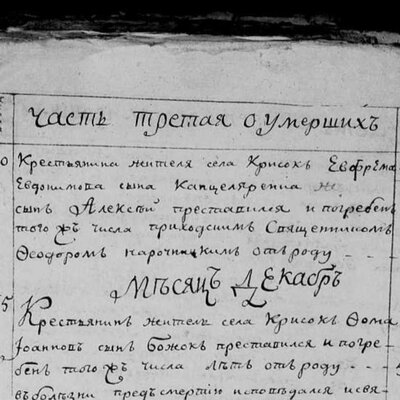 Часть третая о умершихъ
0 Крестьянина жителя села Крисокъ Евфрема
Евдокимова сына Капцелярепка
сынъ Алексѣй преставился и погребенъ
того жъ числа приходскимъ Священникомъ
Ѳеодоромъ Нарочницкимъ отъ роду - - -
Мѣсяцъ Декабрь
5 Крестьянинъ житель села Крисокъ Ѳома
Іоанновъ сынъ Божокъ преставился и погре-
бенъ того жъ числа лѣтъ отъ роду - - -
въ болѣзни предъ смертію исповѣдался и свя-